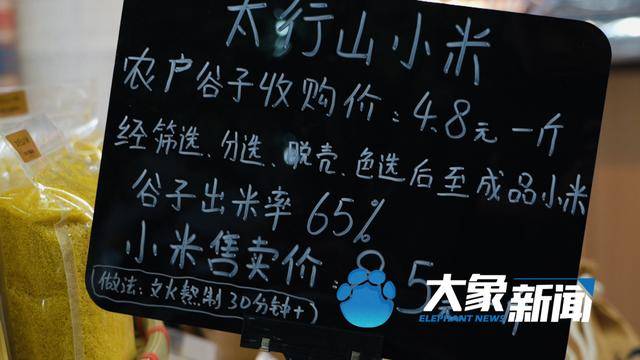 太行山小米
农户谷子收购价：4.8元一斤
经筛选、分选、脱壳、色选后至成品小米
谷子出米率65%
小米售卖价：8.5
做法：文火熬制30分钟+
大象新闻
ELEPHANT NEWS